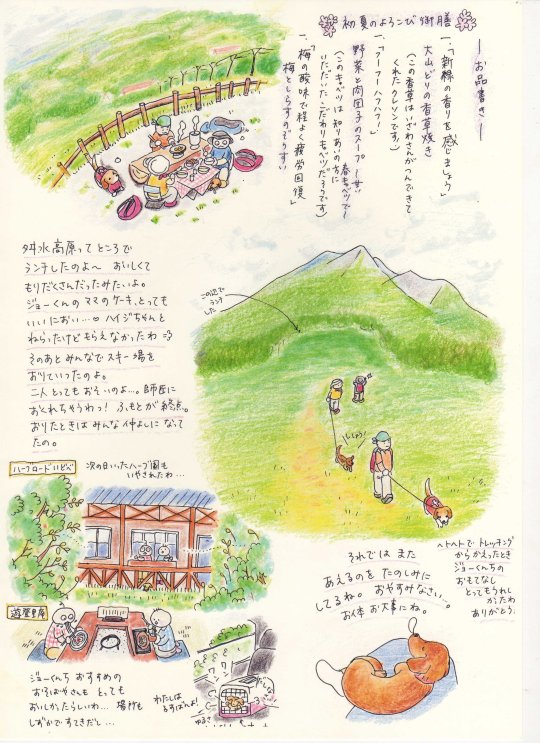 初夏のよろこび御膳
―お品書き―
一、「新緑の香りを感じましょう」
大山どりの香草焼き
(この香草はいざわさんがつんできて
くれたクレソンです)
一、「フーフーハフハフ!」
野菜と肉団子のスープ~甘い
春キャベツで~
(このキャベツは知りあいの方に
いただいたこだわりキャベツだそうです)
一、「梅の酸味で程よく疲労回復」
梅としらすのぞうすい
桝水高原ってところで
ランチしたのよ~ おいしくて
もりだくさんだったみたいよ。
ジョーくんのママのケーキ、とっても
いいにおい…♡ ハイジちゃんと
ねらったけどもらえなかったわ
そのあとみんなでスキー場を
おりていったのよ。
二人とってもおそいのよ…。師匠に
おくれちゃうわっ! ふもとが終点。
おりたときはみんな仲よしになって
たの。
この辺で
ランチ
した
しゅしゅっ
ハーブロードいどべ
次の日いったハーブ園も
いやされたわ…
遊歴里庵
ジョーくんち おすすめの
おそばやさんも とっても
おいしかったらしいわ… 場所も
しずかですてきだし…
わたしは
るすばんよ!
ワン
ワン
それでは また
あえるのを たのしみに
してるね。 おやすみなさい…。
お体 お大事にね。
ヘトヘトで トレッキング
からかえったとき
ジョーくんちの
おもてなし
とってもうれし
かったわ
ありがとう。